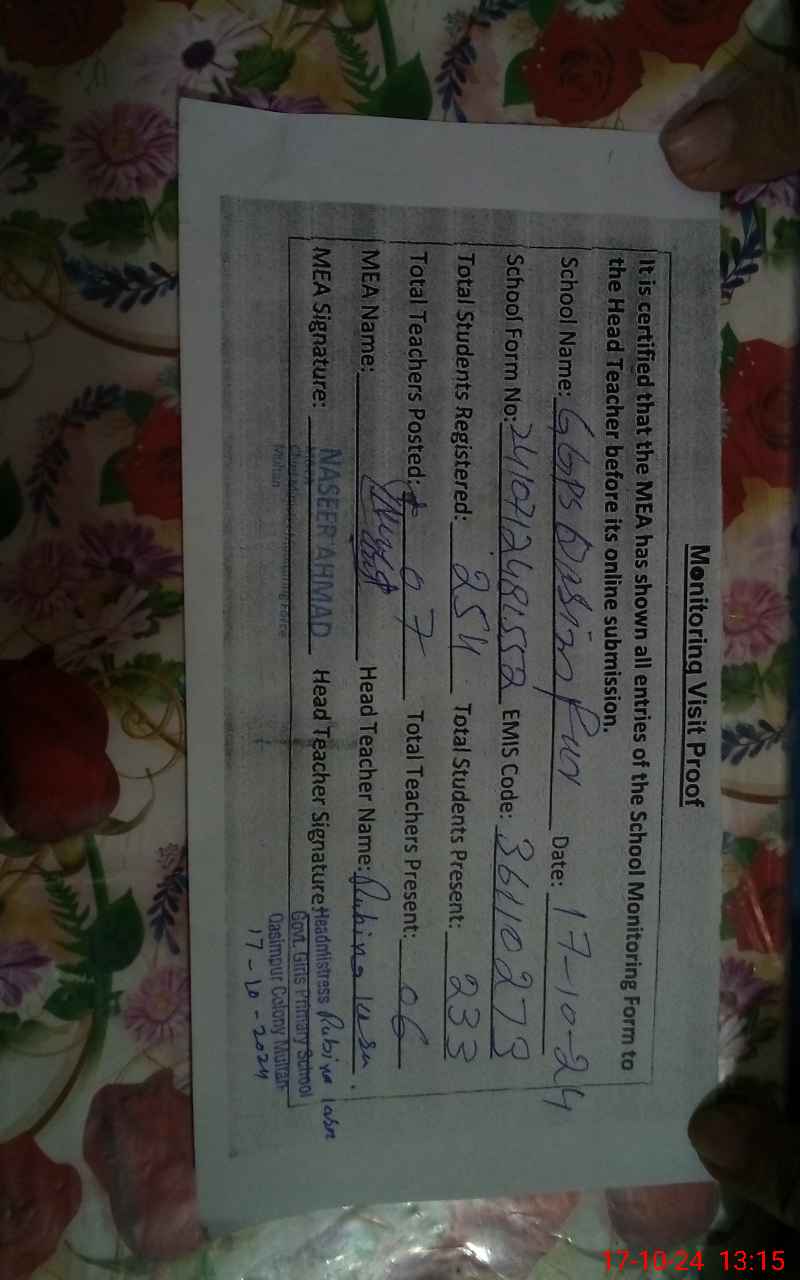 Monitoring Visit Proof
It is certified that the MEA has shown all entries of the School Monitoring Form to
the Head Teacher before its online submission.
School Name: GGPS Qasim Pur Date: 17-10-24
School Form No: EMIS Code: 36110273
Total Students Registered: 254 Total Students Present: 233
Total Teachers Posted: 07 Total Teachers Present: 06
MEA Name: Head Teacher Name: Rubina
MEA Signature: NASEER AHMAD Head Teacher Signature: Headmistress Rubina
Govt. Girls Primary School
Multan Qasimpur Colony Multan
17-10-2024
17-10-24 13:15